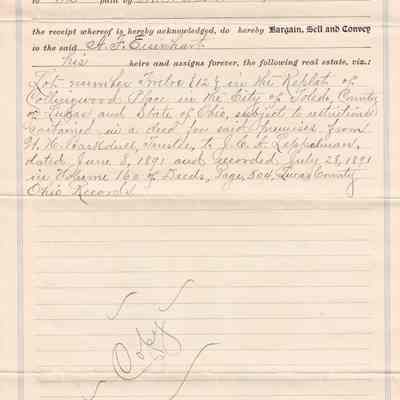 to me paid by
the receipt whereof is hereby acknowledged, do hereby Bargain, Sell and Convey
to the said A. F. Eisenhart
his heirs and assigns forever, the following real estate, viz.:
Lot number Twelve (12) in the Replat of
Collingwood Place in the City of Toledo, County
of Lucas and State of Ohio, subject to restrictions
contained in a deed for said premises from
W. H. Barkdull, Trustee, to J. C. A. Leppelman,
dated June 8, 1891 and recorded July 28, 1891
in Volume 160 of Deeds, Page 504, Lucas County
Ohio Records
Copy